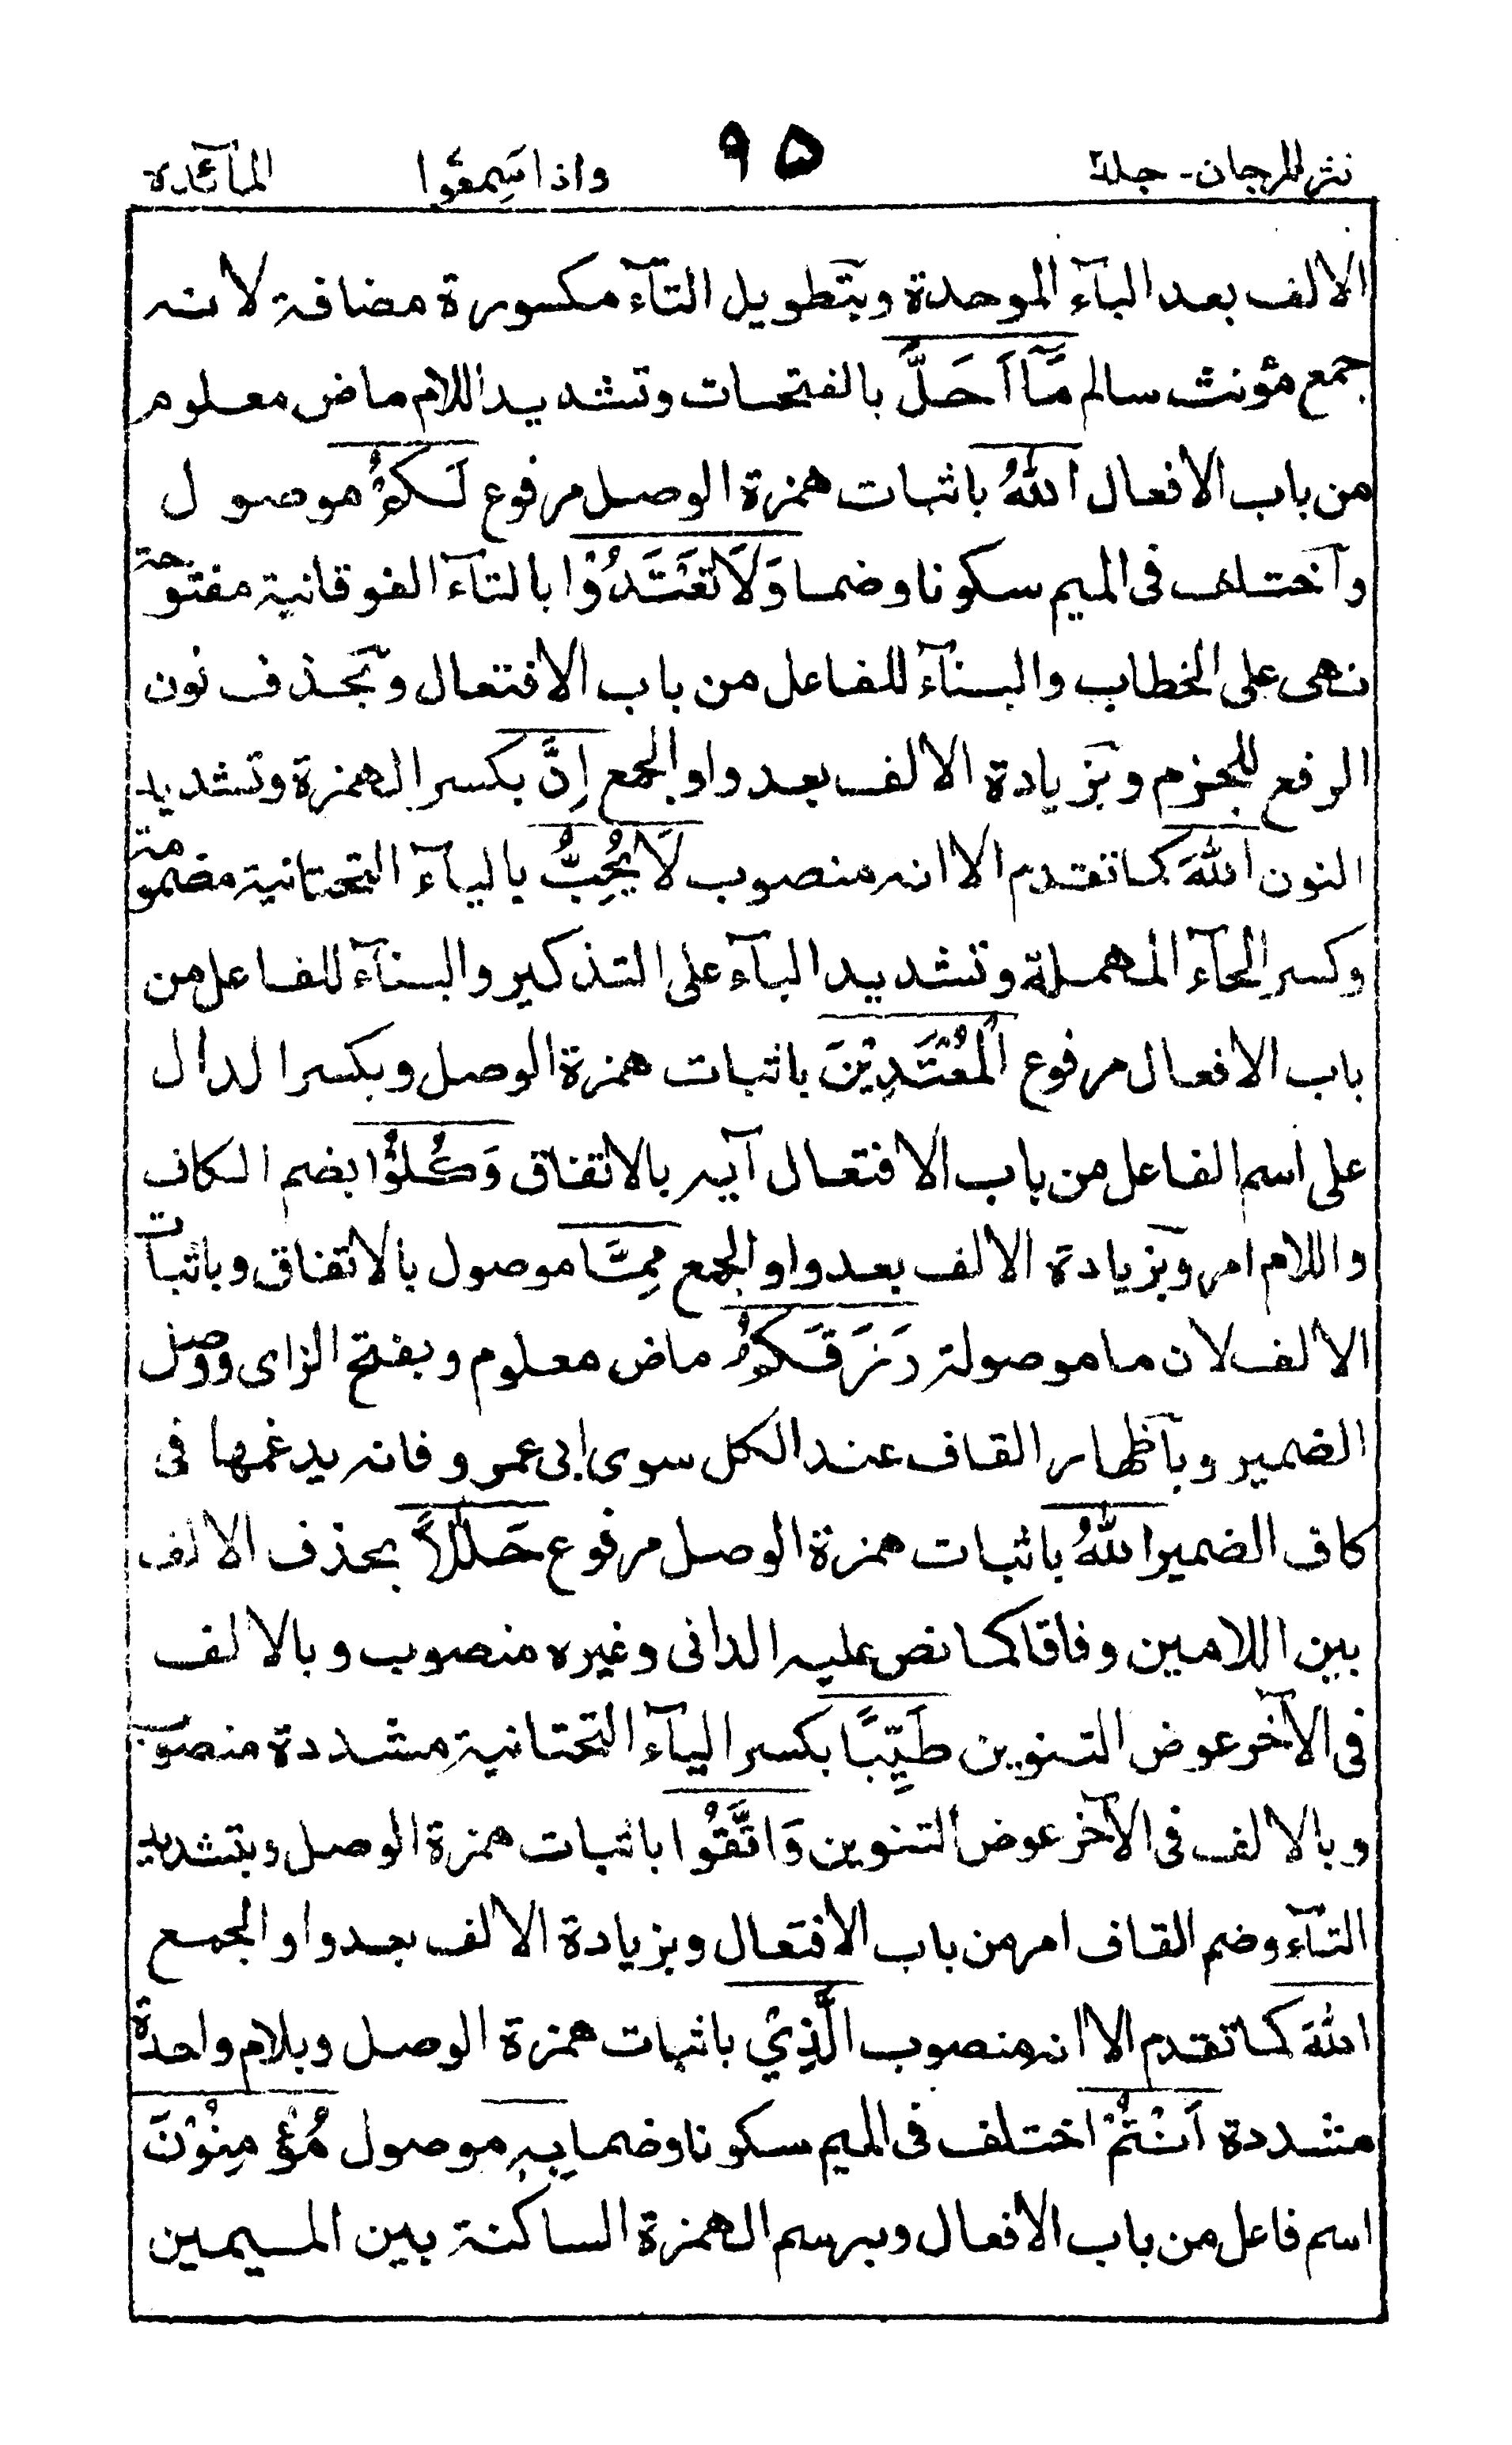 نثر المرجان - جلد ۲ ٩٥ واذا سَمِعُوا المآئدة
الالف بعد البآء الموحدة وبتطويل التآء مكسورة مضافة لانه
جمع مؤنث سالم مَّآ اَحَلَّ بالفتحات وتشديد اللام ماض معلوم
من باب الافعال اللهُ باثبات همزة الوصل مرفوع لَكُمْ موصول
وآختلف فى الميم سكونا وضما وَلَا تَعْتَدُوْا بالتآء الفوقانية مفتوحة
نهى على الخطاب والبنآء للفاعل من باب الافتعال وبحذف نون
الرفع للجزم وبزيادة الالف بعد واو الجمع اِنَّ بكسر الهمزة وتشديد
النون اللهَ كما تقدم الا انه منصوب لَا يُحِبُّ باليآء التحتانية مضمومة
وكسر الحآء المهملة وتشديد البآء على التذكير والبنآء للفاعل من
باب الافعال مرفوع الْمُعْتَدِيْنَ باثبات همزة الوصل وبكسر الدال
على اسم الفاعل من باب الافتعال آيه بالاتفاق وَكُلُوْا بضم الكاف
واللام امر وبزيادة الالف بعد واو الجمع مِمَّا موصول بالاتفاق وباثبات
الالف لان ما موصولة رَزَقَكُمْ ماض معلوم وبفتح الزاى ووصل
الضمير وبآظهار القاف عند الكل سوى ابى عمرو فانه يدغمها فى
كاف الضمير اللهُ باثبات همزة الوصل مرفوع حَلٰلًا بحذف الالف
بين اللامين وفاقا كما نص عليه الدانى وغيره منصوب وبالالف
فى الآخر عوض التنوين طَيِّبًا بكسر اليآء التحتانية مشددة منصوب
وبالالف فى الآخر عوض التنوين وَاتَّقُوا باثبات همزة الوصل وبتشديد
التآء وضم القاف امر من باب الافتعال وبزيادة الالف بعد واو الجمع
اللهَ كما تقدم الا انه منصوب الَّذِيْ باثبات همزة الوصل وبلام واحدة
مشددة اَنْتُمْ اختلف فى الميم سكونا وضما بِهٖ موصول مُؤْمِنُوْنَ
اسم فاعل من باب الافعال وبرسم الهمزة الساكنة بين الميمين